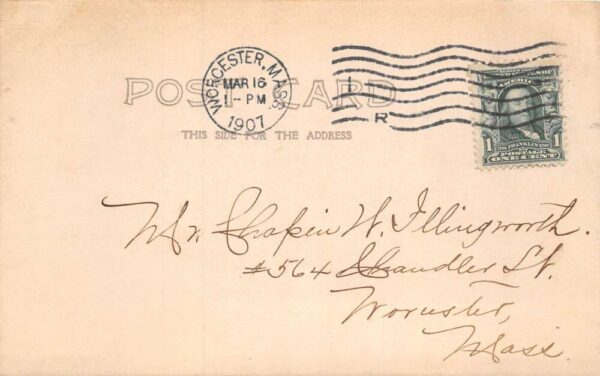 WORCESTER, MASS.
MAR 16
1 - PM
1907
R
POST CARD
THIS SIDE FOR THE ADDRESS
UNITED STATES OF AMERICA
1 FRANKLIN 1
POSTAGE
ONE CENT
Mr. Chapin W. Illingworth.
#564 Chandler St.
Worcester,
Mass.